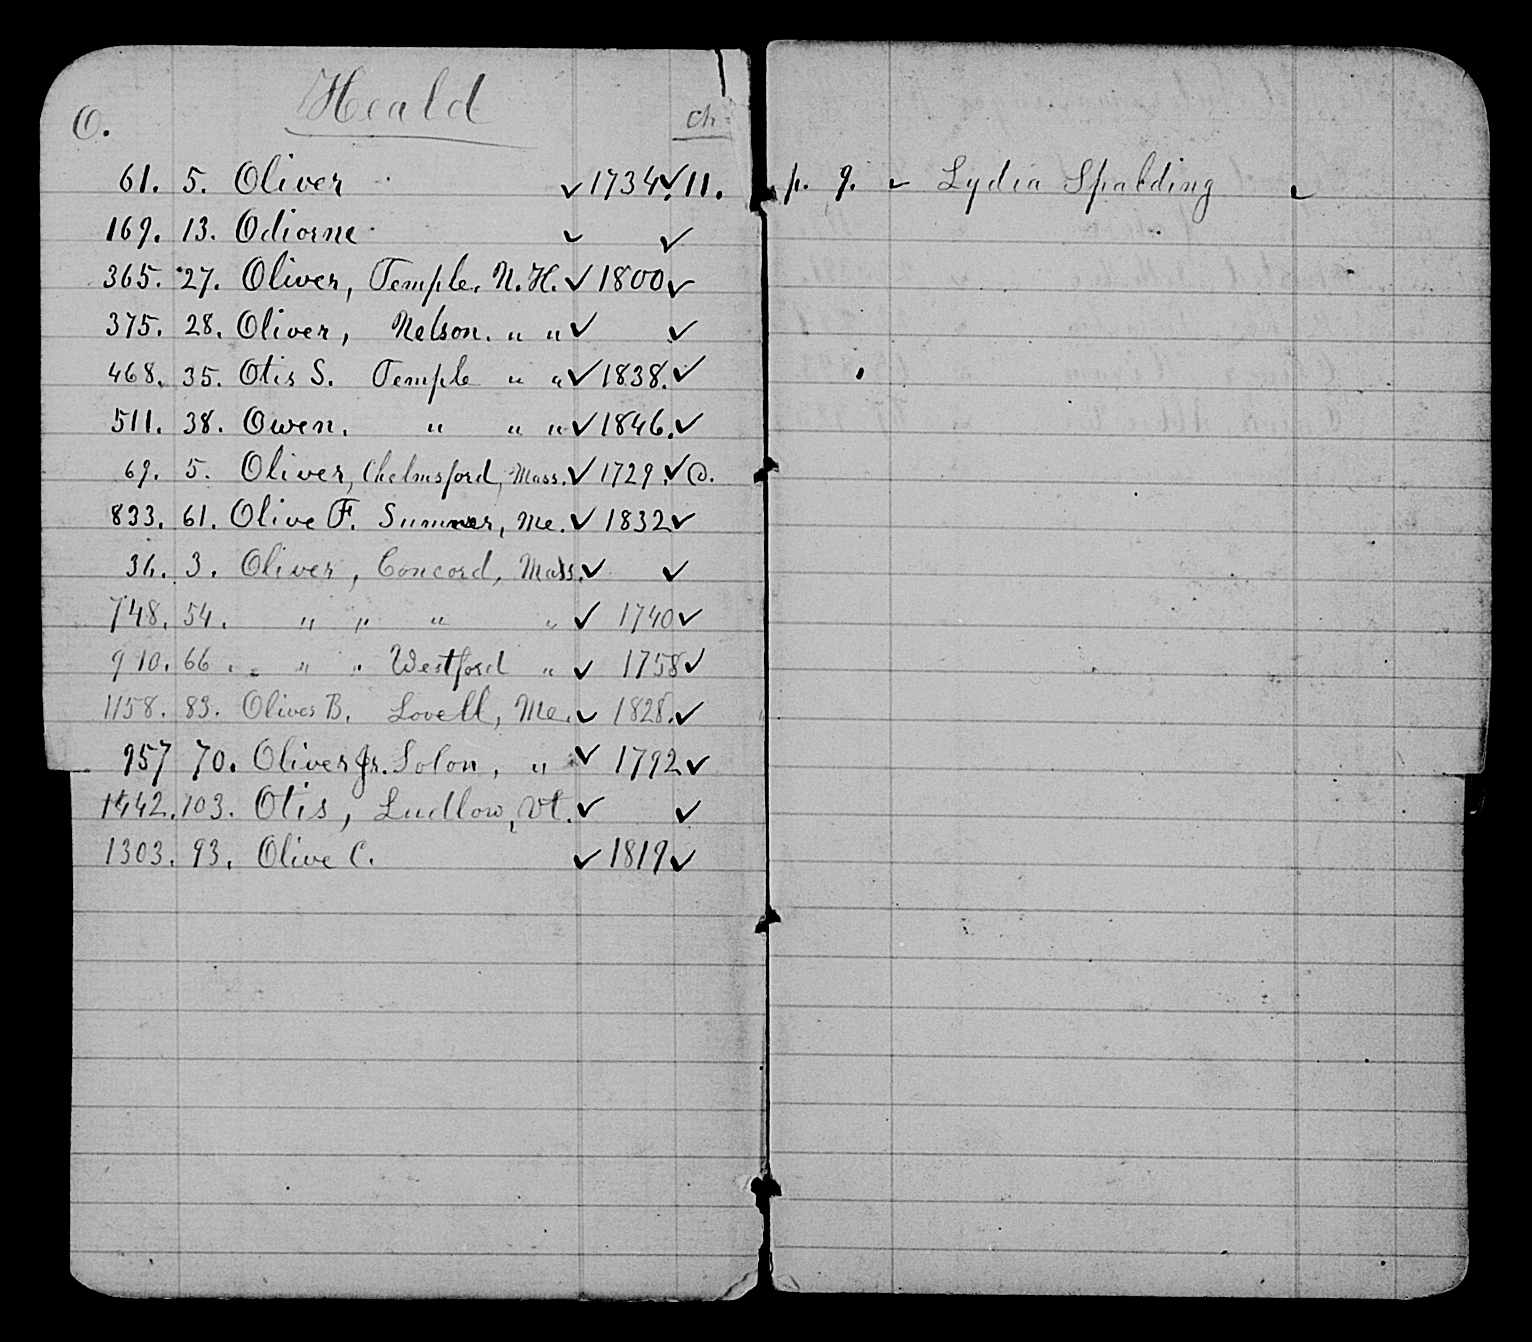 Heald
O. ch.
61. 5. Oliver ✓ 1734 ✓. 11. p. 9. ✓ Lydia Spalding ✓
169. 13. Odiorne ✓ ✓
365. 27. Oliver, Temple, N. H. ✓ 1800 ✓
375. 28. Oliver, Nelson. " " ✓ ✓
468. 35. Otis S. Temple " " ✓ 1838. ✓
511. 38. Owen. " " " ✓ 1846. ✓
69. 5. Oliver, Chelmsford, Mass. ✓ 1729. ✓ @.
833. 61. Olive F. Sumner, Me. ✓ 1832 ✓
3. Oliver, Concord, Mass. ✓ ✓
748. 54. " " " " ✓ 1740 ✓
910. 66. " " Westford " ✓ 1758 ✓
1158. 83. Oliver B. Lovell, Me. ✓ 1828. ✓
957 70. Oliver Jr. Solon, " ✓ 1792 ✓
1442. 103. Otis, Ludlow, Vt. ✓ ✓
1303. 93. Olive C. ✓ 1819 ✓